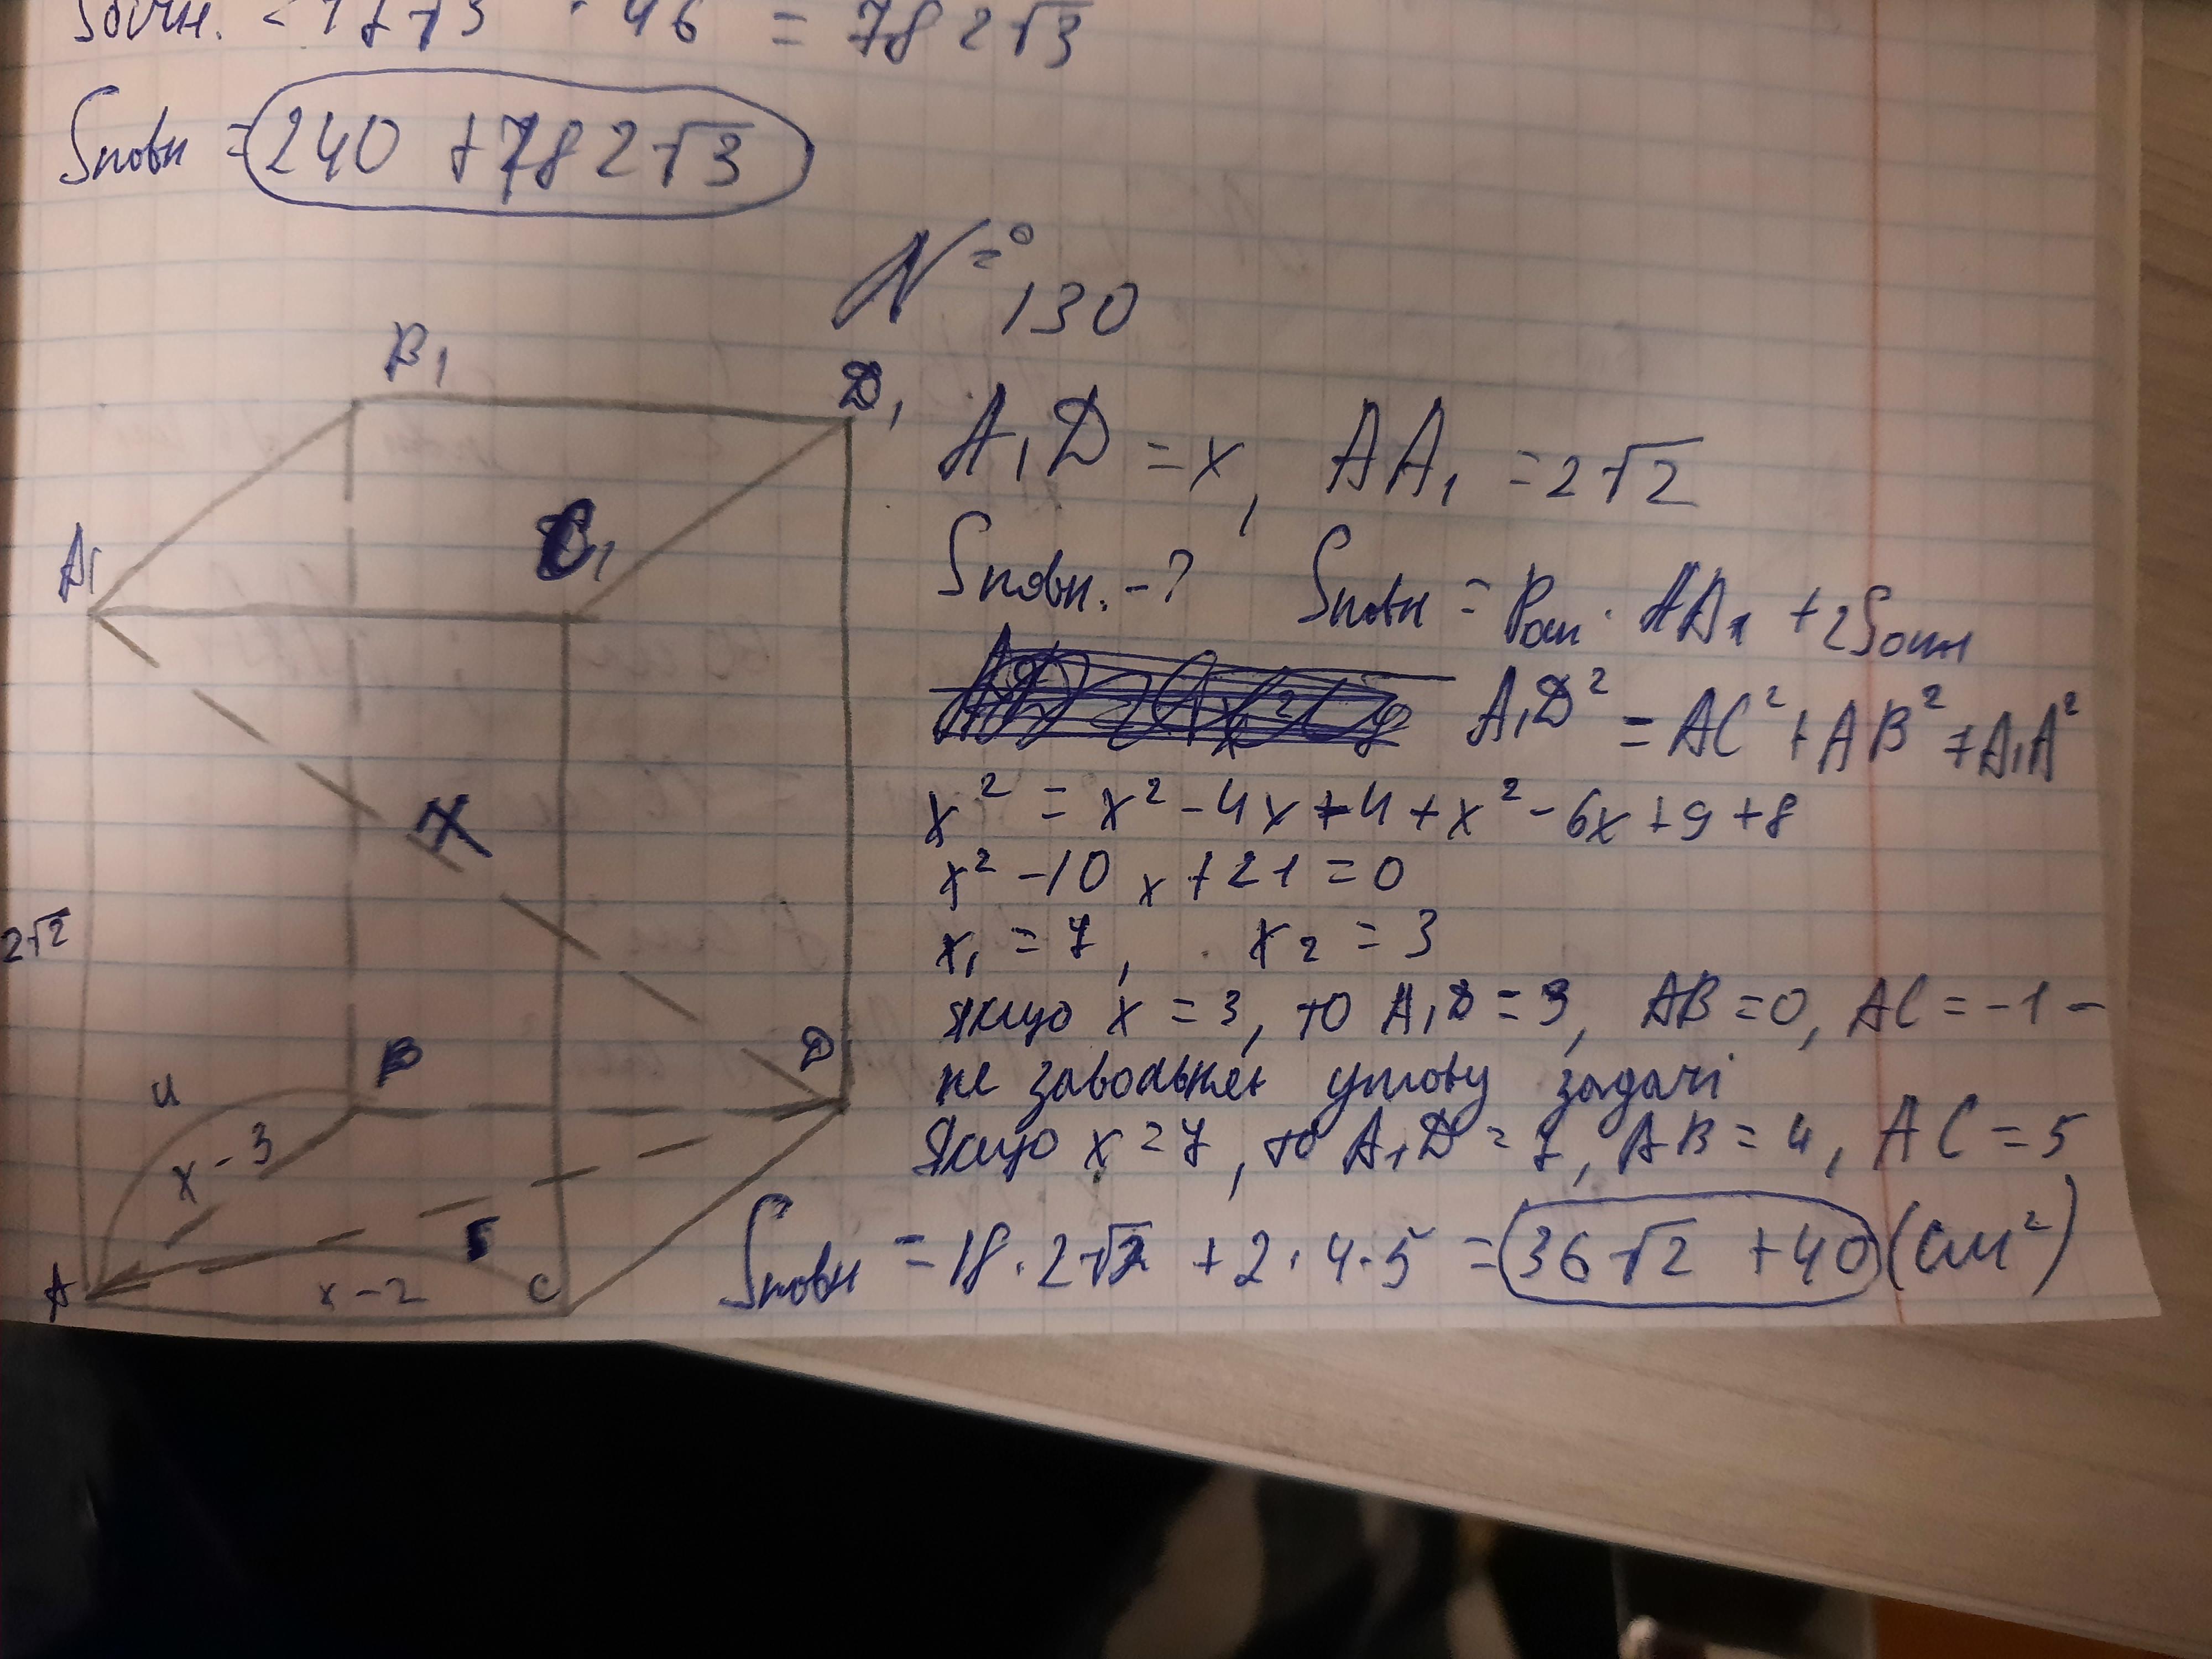 Sосн. = 17√3 · 46 = 782√3
Sповн = 240 + 782√3
№ 130
B₁
D₁
A₁D = x, AA₁ = 2√2
C₁
A₁
Sповн. - ? Sповн = Pосн · AA₁ + 2Sосн
A₁D² = AC² + AB² + A₁A²
x
x² = x² - 4x + 4 + x² - 6x + 9 + 8
x² - 10x + 21 = 0
2√2
x₁ = 7, x₂ = 3
якщо x = 3, то A₁D = 3, AB = 0, AC = -1 -
B
D
не завольняє умову задачі
4
x - 3
Якщо x = 7, то A₁D = 7, AB = 4, AC = 5
5
A
x - 2
C
Sповн = 18 · 2√2 + 2 · 4 · 5 = 36√2 + 40 (см²)